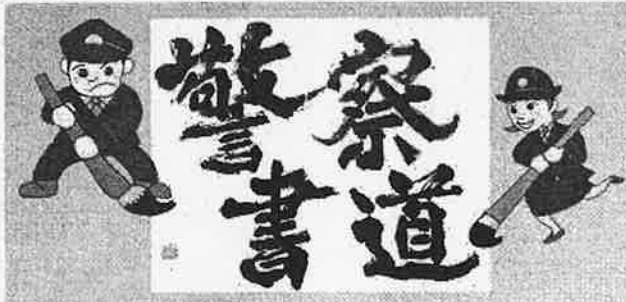 警察
書道